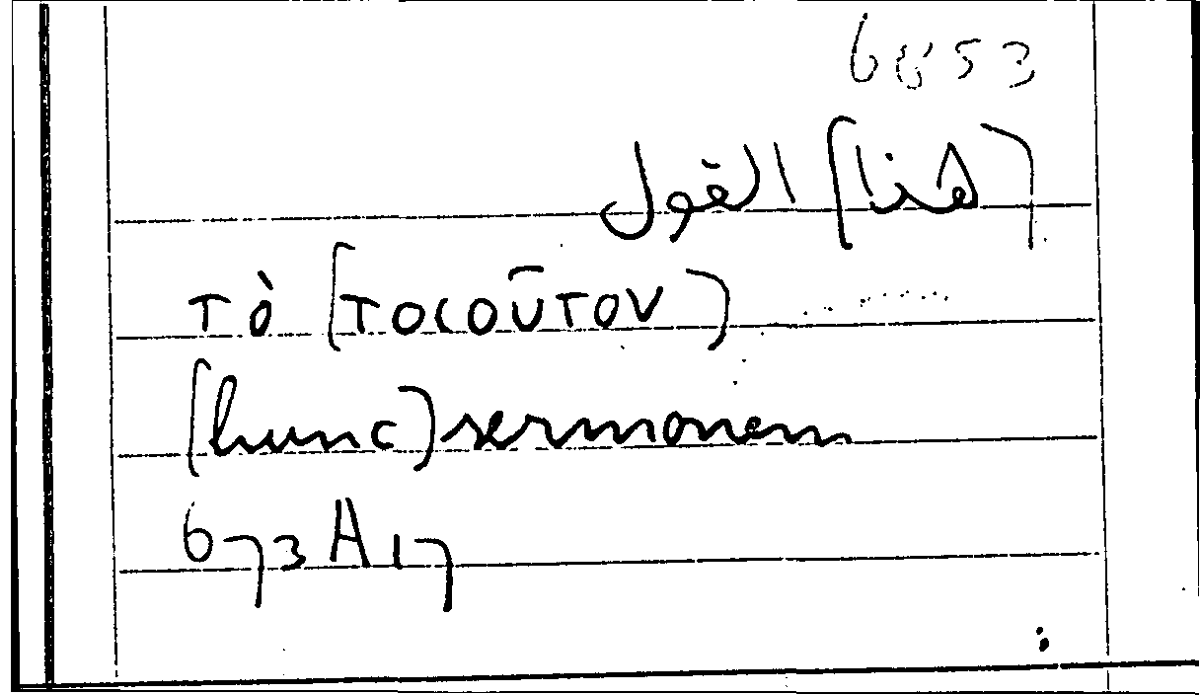 6653
[هذا] القول
τὸ [τοσοῦτον]
[hunc] sermonem
673A17